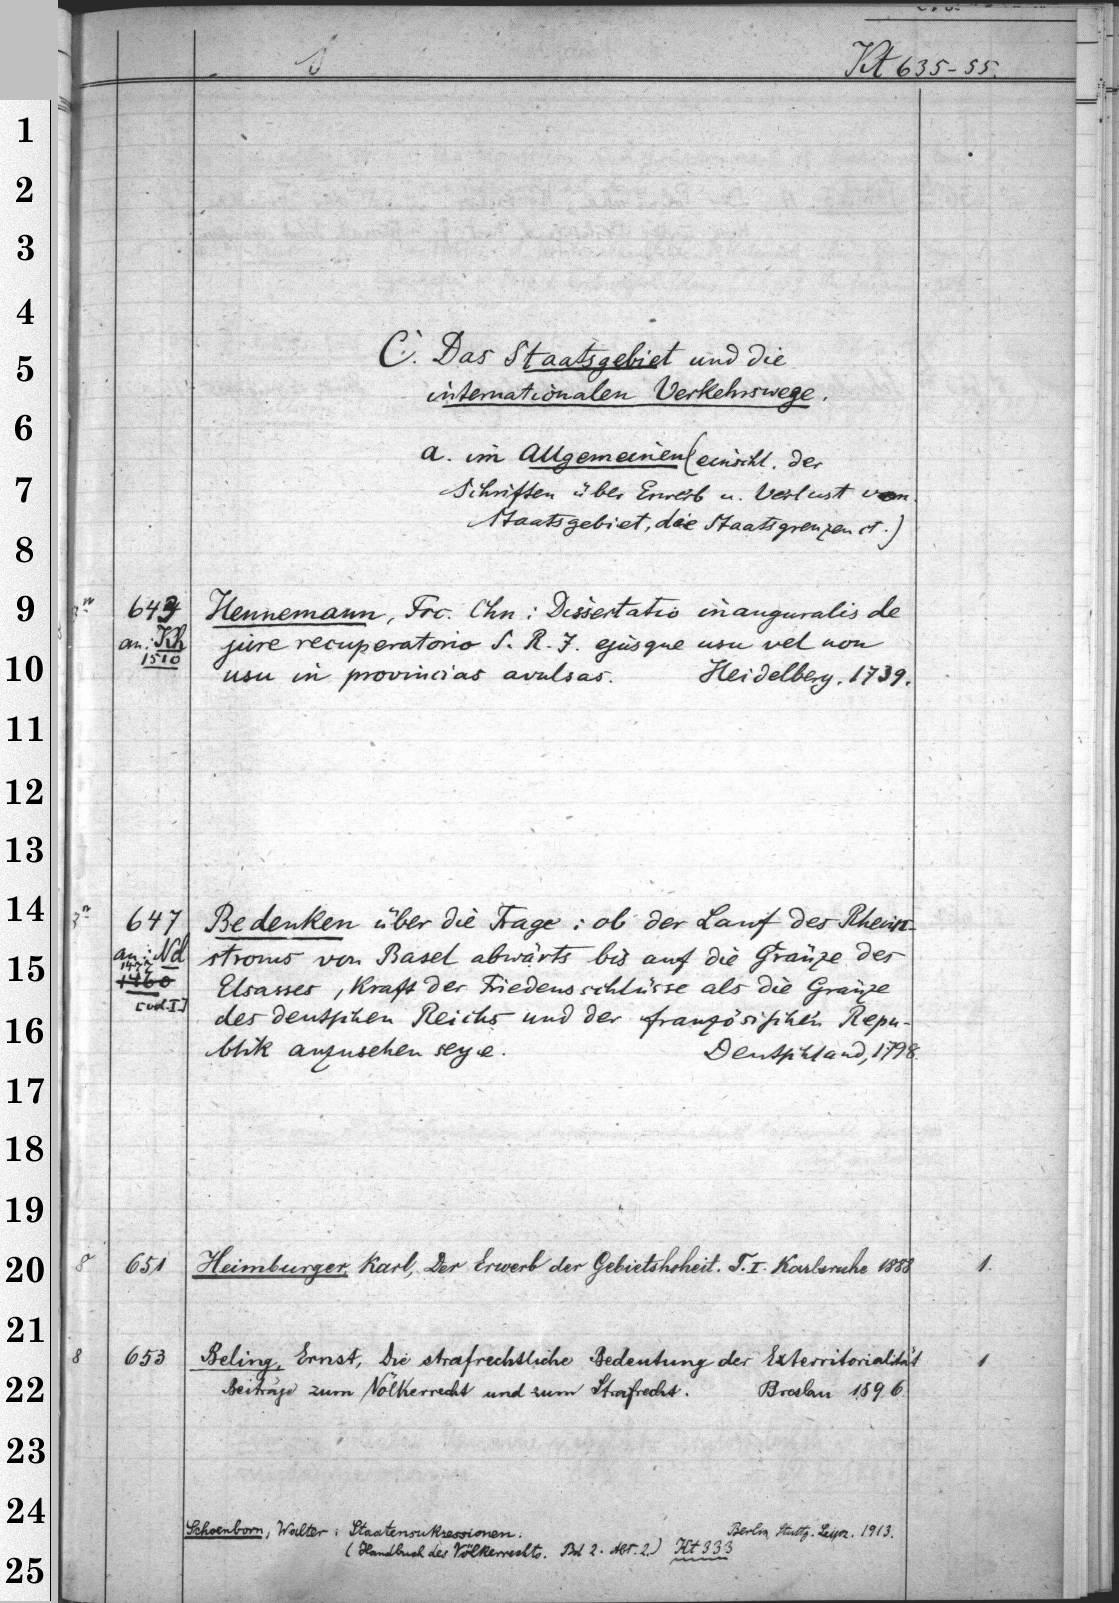 Kt 635-55.
1
2
3
4
C. Das Staatsgebiet und die
5
internationalen Verkehrswege.
6
a. im Allgemeinen (einschl. der
7
Schriften über Erwerb u. Verlust von
Staatsgebiet, die Staatsgrenzen ct.)
8
9
643 Hennemann, Frc. Chn: Dissertatio inauguralis de
an: Kh jure recuperatorio S. R. J. ejusque usu vel non
1510
10
usu in provincias avulsas. Heidelberg. 1739.
11
12
13
14
647 Bedenken über die Frage: ob der Lauf des Rhein-
an: Nd stroms von Basel abwärts bis auf die Gränze des
15
1460 Elsasses, Kraft der Friedensschlüsse als die Gränze
[vol. I] des deutschen Reichs und der französischen Repu-
16
blik anzusehen seye. Deutschland, 1798.
17
18
19
20
8 651 Heimburger, Karl, Der Erwerb der Gebietshoheit. T. I. Karlsruhe 1888 1.
21
8 653 Beling, Ernst, Die strafrechtliche Bedeutung der Exterritorialität 1
22
Beiträge zum Völkerrecht und zum Strafrecht. Breslau 1896
23
24
Schoenborn, Walter: Staatensukzessionen. Berlin, Stuttg. Leipz. 1913.
(Handbuch des Völkerrechts. Bd 2. Abt. 2.) Kt 333
25